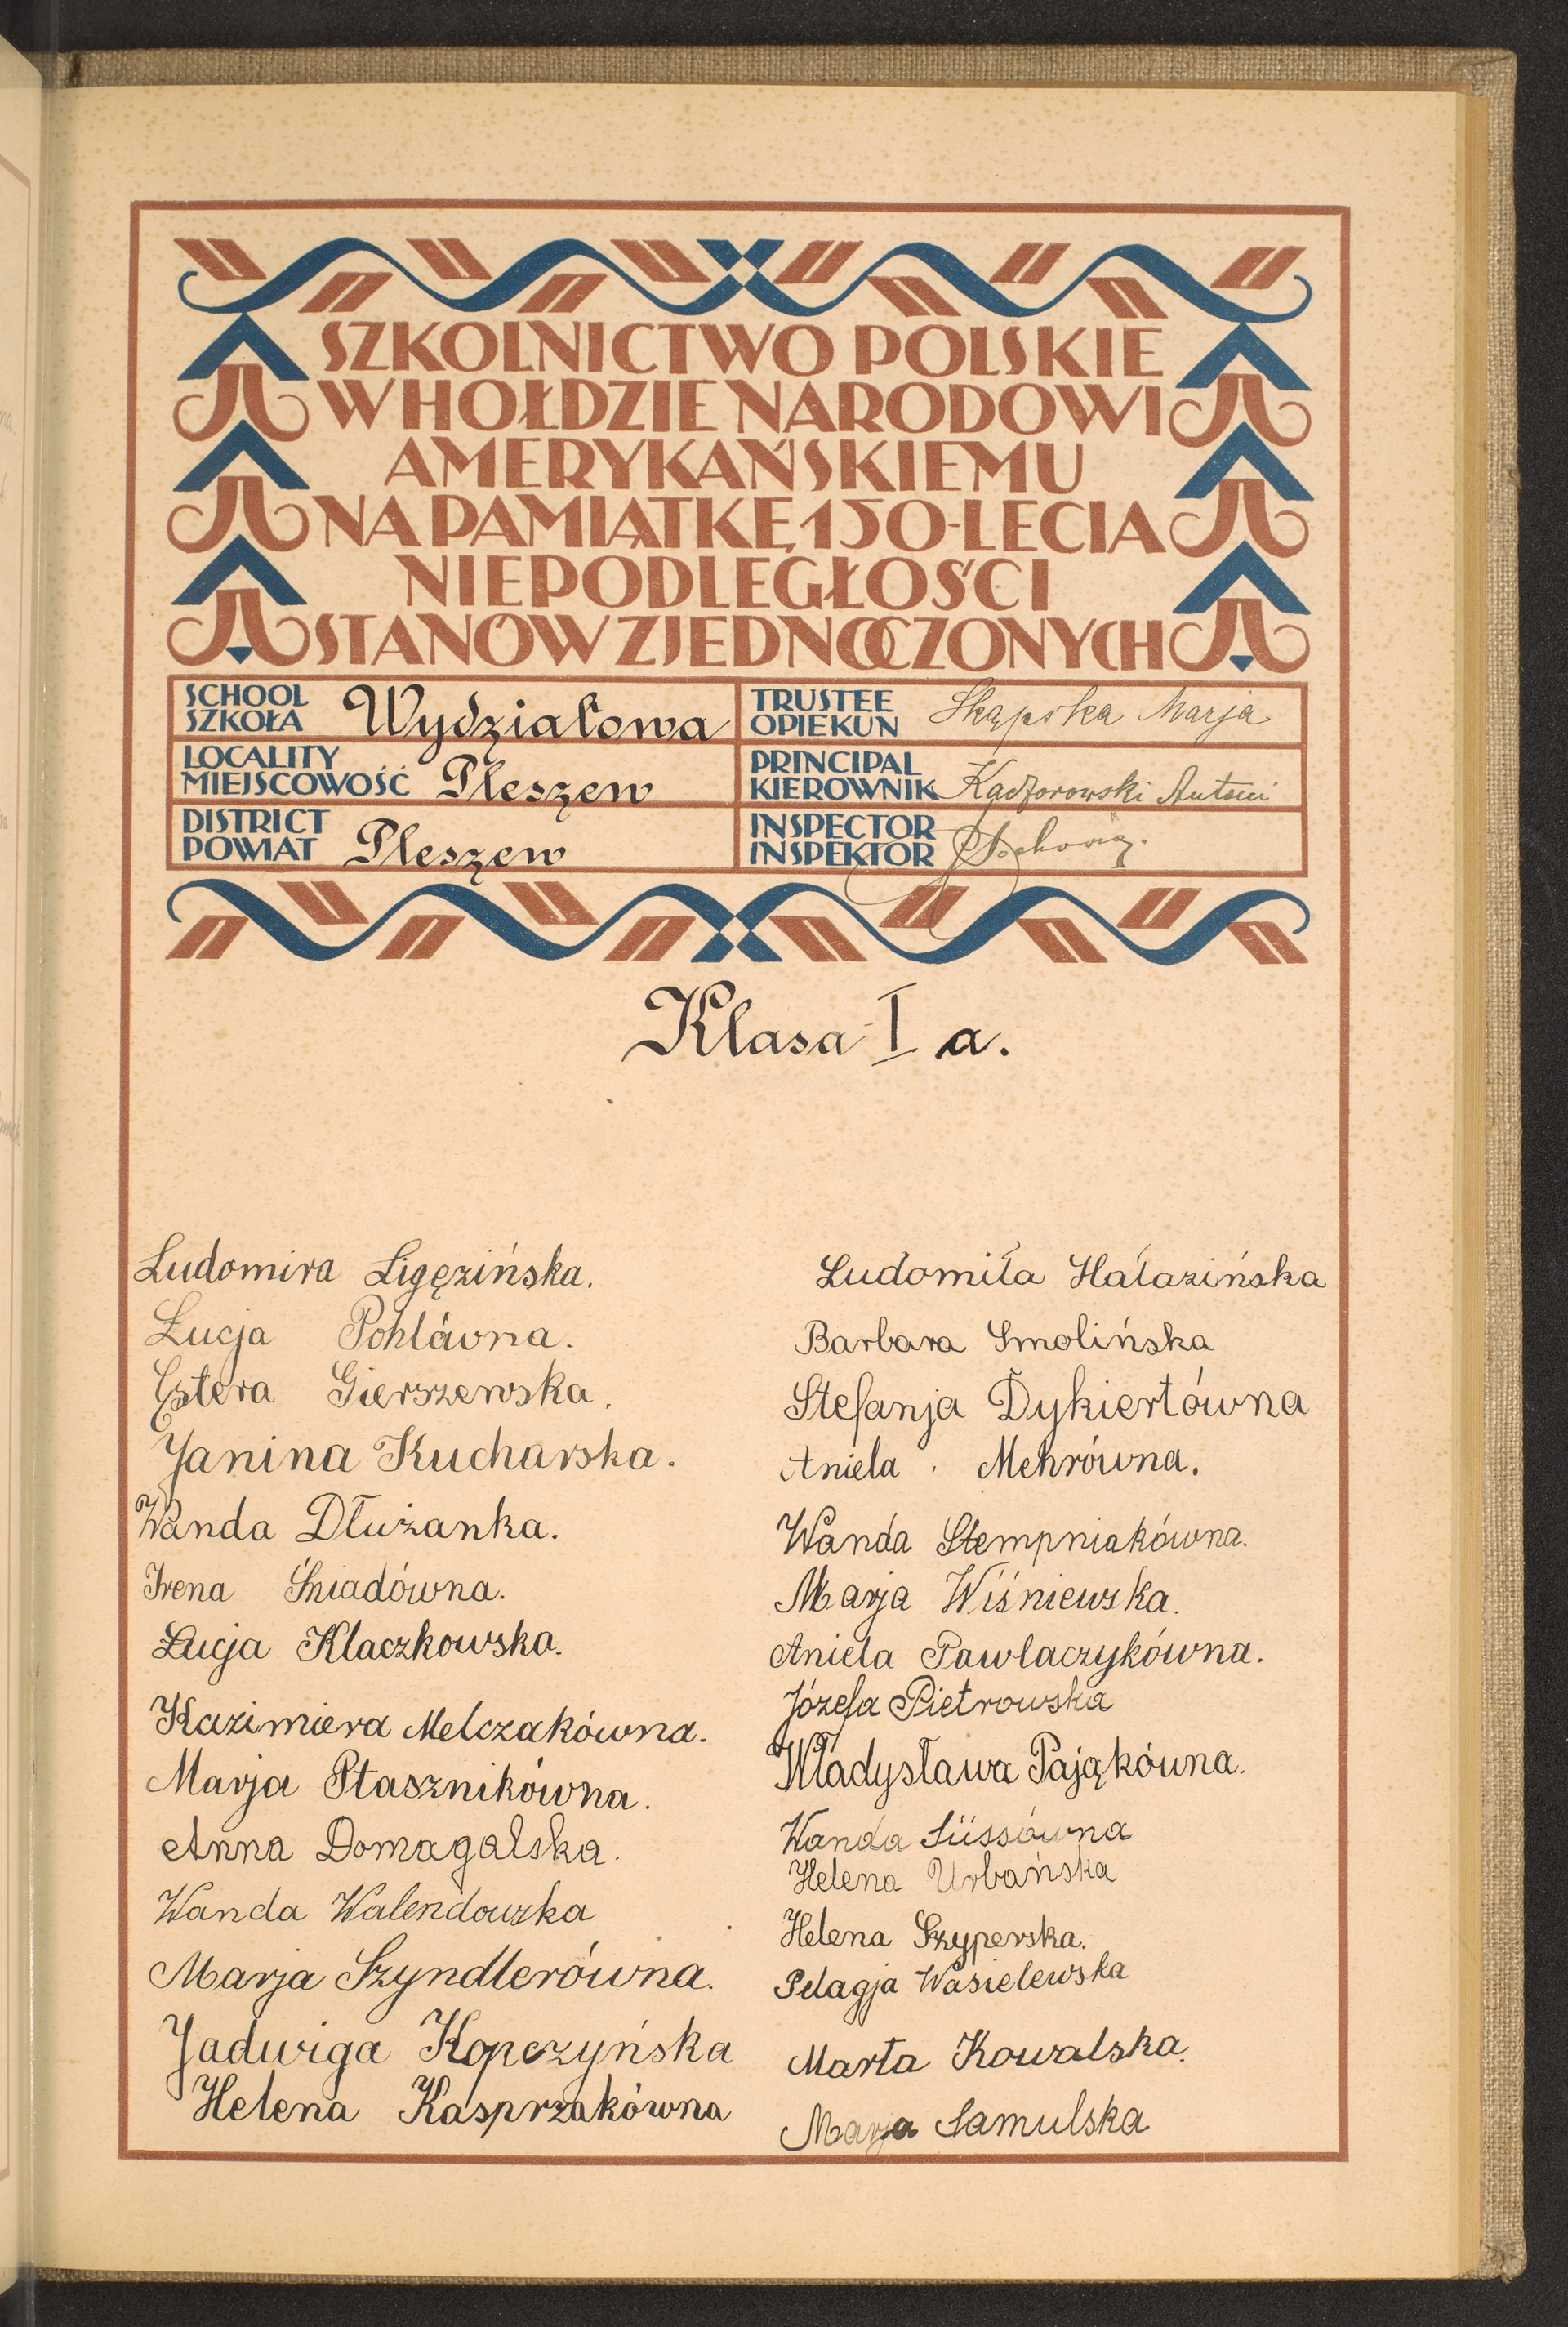 SZKOLNICTWO POLSKIE
W HOŁDZIE NARODOWI
AMERYKAŃSKIEMU
NA PAMIĄTKĘ 150-LECIA
NIEPODLEGŁOŚCI
STANÓW ZJEDNOCZONYCH
SCHOOL
SZKOŁA Wydziałowa
TRUSTEE
OPIEKUN Skąpska Marja
LOCALITY
MIEJSCOWOŚĆ Pleszew
PRINCIPAL
KIEROWNIK Antoni
DISTRICT
POWIAT Pleszew
INSPECTOR
INSPEKTOR
Klasa I a.
Ludomira Ligęzińska.
Łucja Pohlówna.
Estera Gierszewska.
Janina Kucharska.
Wanda Dłużanka.
Irena Śniadówna.
Łucja Klaczkowska.
Kazimiera Melczakówna.
Marja Ptasznikówna.
Anna Domagalska.
Wanda Walendowska
Marja Szyndlerówna.
Jadwiga Kopczyńska
Helena Kasprzakówna
Ludomiła Hałazińska
Barbara Smolińska
Stefanja Dykiertówna
Aniela Mehrówna.
Wanda Stempniakówna.
Marja Wiśniewska.
Aniela Pawlaczykówna.
Józefa Pietrowska
Władysława Pająkówna.
Wanda Süssówna
Helena Urbańska
Helena Szyperska.
Pelagja Wasielewska
Marta Kowalska.
Marja Samulska